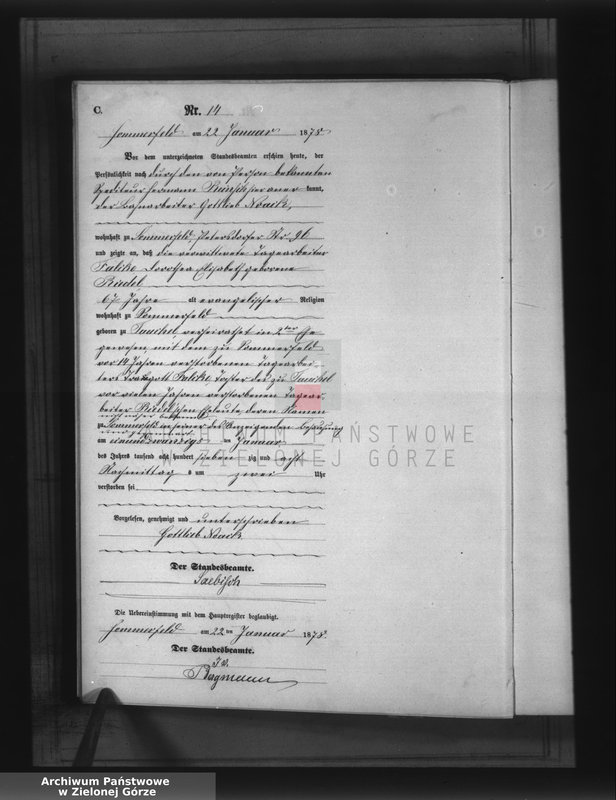 C. Nr. 14
Sommerfeld am 22 Januar 1878
Vor dem unterzeichneten Standesbeamten erschien heute, der
Persönlichkeit nach durch den von Person bekannten
Spediteur Hermann kannt,
der Bahnarbeiter Gottlieb Noack,
wohnhaft zu Sommerfeld, Petersdorfer Str 96
und zeigte an, daß die verwittwete Tagearbeiter
Falike Dorothea Elisabeth geborene
Riedel
67 Jahre alt evangelischer Religion
wohnhaft zu Sommerfeld
geboren zu Tauchel verheirathet in 2ter Ehe
gewesen mit dem zu Sommerfeld
vor 14 Jahren verstorbenen Tagearbei-
ter Traugott Falike Tochter der zu Tauchel
vor vielen Jahren verstorbenen Tagear-
beiter Riedel'schen Eheleute deren Namen
nicht näher bekannt
zu Sommerfeld in seiner des Anzeigenden Behausung
und
am einundzwanzigsten Januar
des Jahres tausend acht hundert sieben zig und acht
Nachmittag s um zwei Uhr
verstorben sei
Vorgelesen, genehmigt und unterschrieben
Gottlieb Noack
Der Standesbeamte.
Die Uebereinstimmung mit dem Hauptregister beglaubigt.
Sommerfeld am 22 ten Januar 1878.
Der Standesbeamte.
I. V.
PAŃSTWOWE
ZIELONEJ GÓRZE
Archiwum Państwowe
w Zielonej Górze